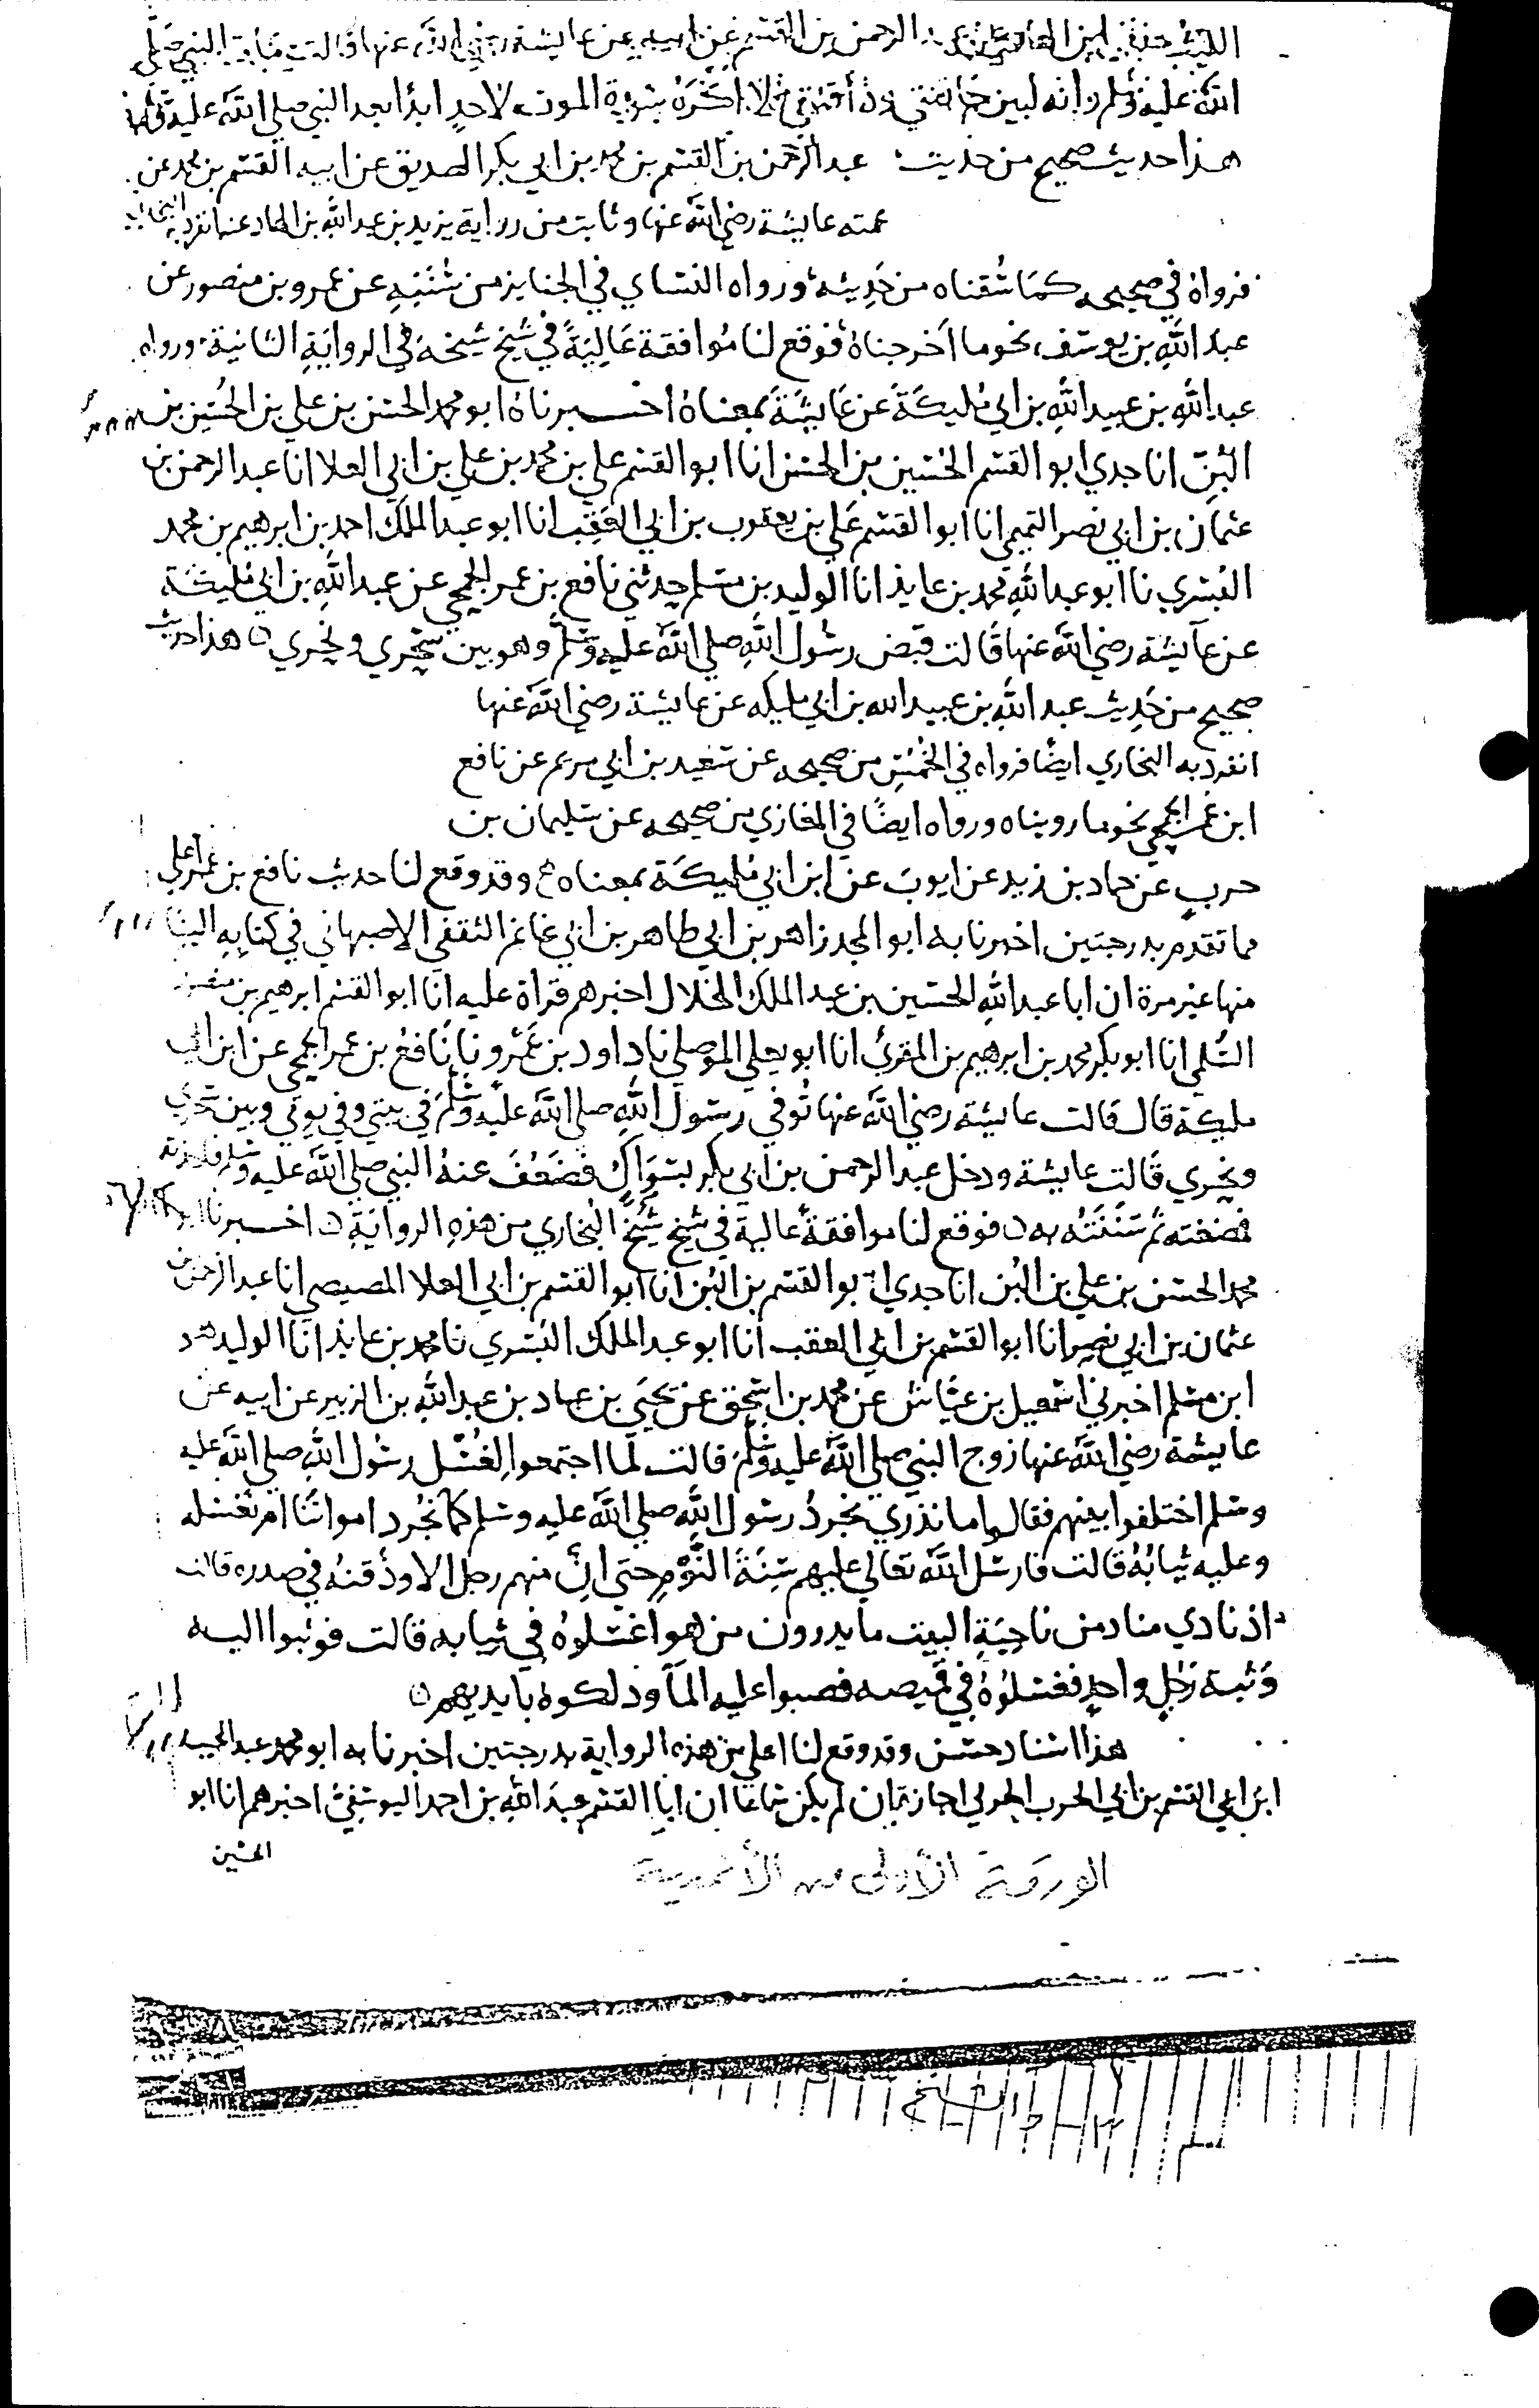 الليث حدثني ابن الهاد عن عبد الرحمن بن القسم عن ابيه عن عايشة رضي الله عنها قالت مات النبي صلى
الله عليه وسلم وانه لبين حاقنتي وذاقنتي فلا اكره شدة الموت لاحد ابدا بعد النبي صلى الله عليه وسلم
هذا حديث صحيح من حديث عبد الرحمن بن القسم بن محمد بن ابي بكر الصديق عن ابيه القسم بن محمد عن
عمته عايشة رضي الله عنها وثابت من رواية يزيد بن عبد الله بن الهاد عنه انفرد به البخاري
فرواه في صحيحه كما سقناه من حديثه ورواه النساي في الجنايز من سننه عن عمرو بن منصور عن
عبد الله بن يوسف نحو ما اخرجناه فوقع لنا موافقة عالية في شيخ شيخه في الرواية الثانية ورواه
عبد الله بن عبيد الله بن ابي مليكة عن عايشة بمعناه اخبرناه ابو محمد الحسن بن علي بن الحسين بن
البن انا جدي ابو القسم الحسين بن الحسن انا ابو القسم علي بن محمد بن علي بن ابي العلا انا عبد الرحمن بن
عثمان بن ابي نصر التميمي انا ابو القسم علي بن يعقوب بن ابي العقب انا ابو عبد الملك احمد بن ابرهيم بن محمد
البسري نا ابو عبد الله محمد بن عايذ انا الوليد بن مسلم حدثني نافع بن عمر الجمحي عن عبد الله بن ابي مليكة
عن عايشة رضي الله عنها قالت قبض رسول الله صلى الله عليه وسلم وهو بين سحري ونحري هذا حديث
صحيح من حديث عبد الله بن عبيد الله بن ابي مليكه عن عايشة رضي الله عنها
انفرد به البخاري ايضا فرواه في الخمس من صحيحه عن سعيد بن ابي مريم عن نافع
ابن عمر الجمحي نحو ما رويناه ورواه ايضا في المغازي من صحيحه عن سليمان بن
حرب عن حماد بن زيد عن ايوب عن ابن ابي مليكة بمعناه وقد وقع لنا حديث نافع بن عمر اعلى
مما تقدم بدرجتين اخبرنا به ابو المجد زاهر بن ابي طاهر بن ابي غانم الثقفي الاصبهاني في كتابه الينا
منها غير مرة ان ابا عبد الله الحسين بن عبد الملك الخلال اخبرهم قراة عليه انا ابو القسم ابرهيم بن منصور
السلمي انا ابو بكر محمد بن ابرهيم بن المقرئ انا ابو يعلي الموصلي نا داود بن عمرو نا نافع بن عمر الجمحي عن ابن ابي
مليكة قال قالت عايشة رضي الله عنها توفي رسول الله صلى الله عليه وسلم في بيتي وفي يومي وبين سحري
ونحري قالت عايشة ودخل عبد الرحمن بن ابي بكر بسواك فضعف عنه النبي صلى الله عليه وسلم فاخذته
فمضغته ثم سننته به فوقع لنا موافقة عالية في شيخ شيخ البخاري من هذه الرواية اخبرنا ابو
محمد الحسن بن علي بن البن انا جدي ابو القسم بن البن انا ابو القسم بن ابي العلا المصيصي انا عبد الرحمن بن
عثمان بن ابي نصر انا ابو القسم بن ابي العقب انا ابو عبد الملك البسري نا محمد بن عايذ انا الوليد هو
ابن مسلم اخبرني اسمعيل بن عياش عن محمد بن اسحق عن يحيى بن عباد بن عبد الله بن الزبير عن ابيه عن
عايشة رضي الله عنها زوج النبي صلى الله عليه وسلم قالت لما اجتمعوا لغسل رسول الله صلى الله عليه
وسلم اختلفوا بينهم فقالوا ما ندري نجرد رسول الله صلى الله عليه وسلم كما نجرد امواتنا ام نغسله
وعليه ثيابه قالت فارسل الله تعالى عليهم سنة النوم حتى ان منهم رجل الا وذقنه في صدره قالت
اذ نادى مناد من ناحية البيت ما يدرون من هو اغسلوه في ثيابه قالت فوثبوا اليه
وثبة رجل واحد فغسلوه في قميصه فصبوا عليه الما ودلكوه بايديهم
هذا اسناد حسن وقد وقع لنا اعلى من هذه الرواية بدرجتين اخبرنا به ابو محمد عبد المجيد
ابن ابي القسم بن ابي الحرب الحربي اجازة ان لم يكن سماعا ان ابا القسم عبد الله بن احمد اليوسفي اخبرهم انا ابو
الحسين
الورقة الأولى من الأحمدية